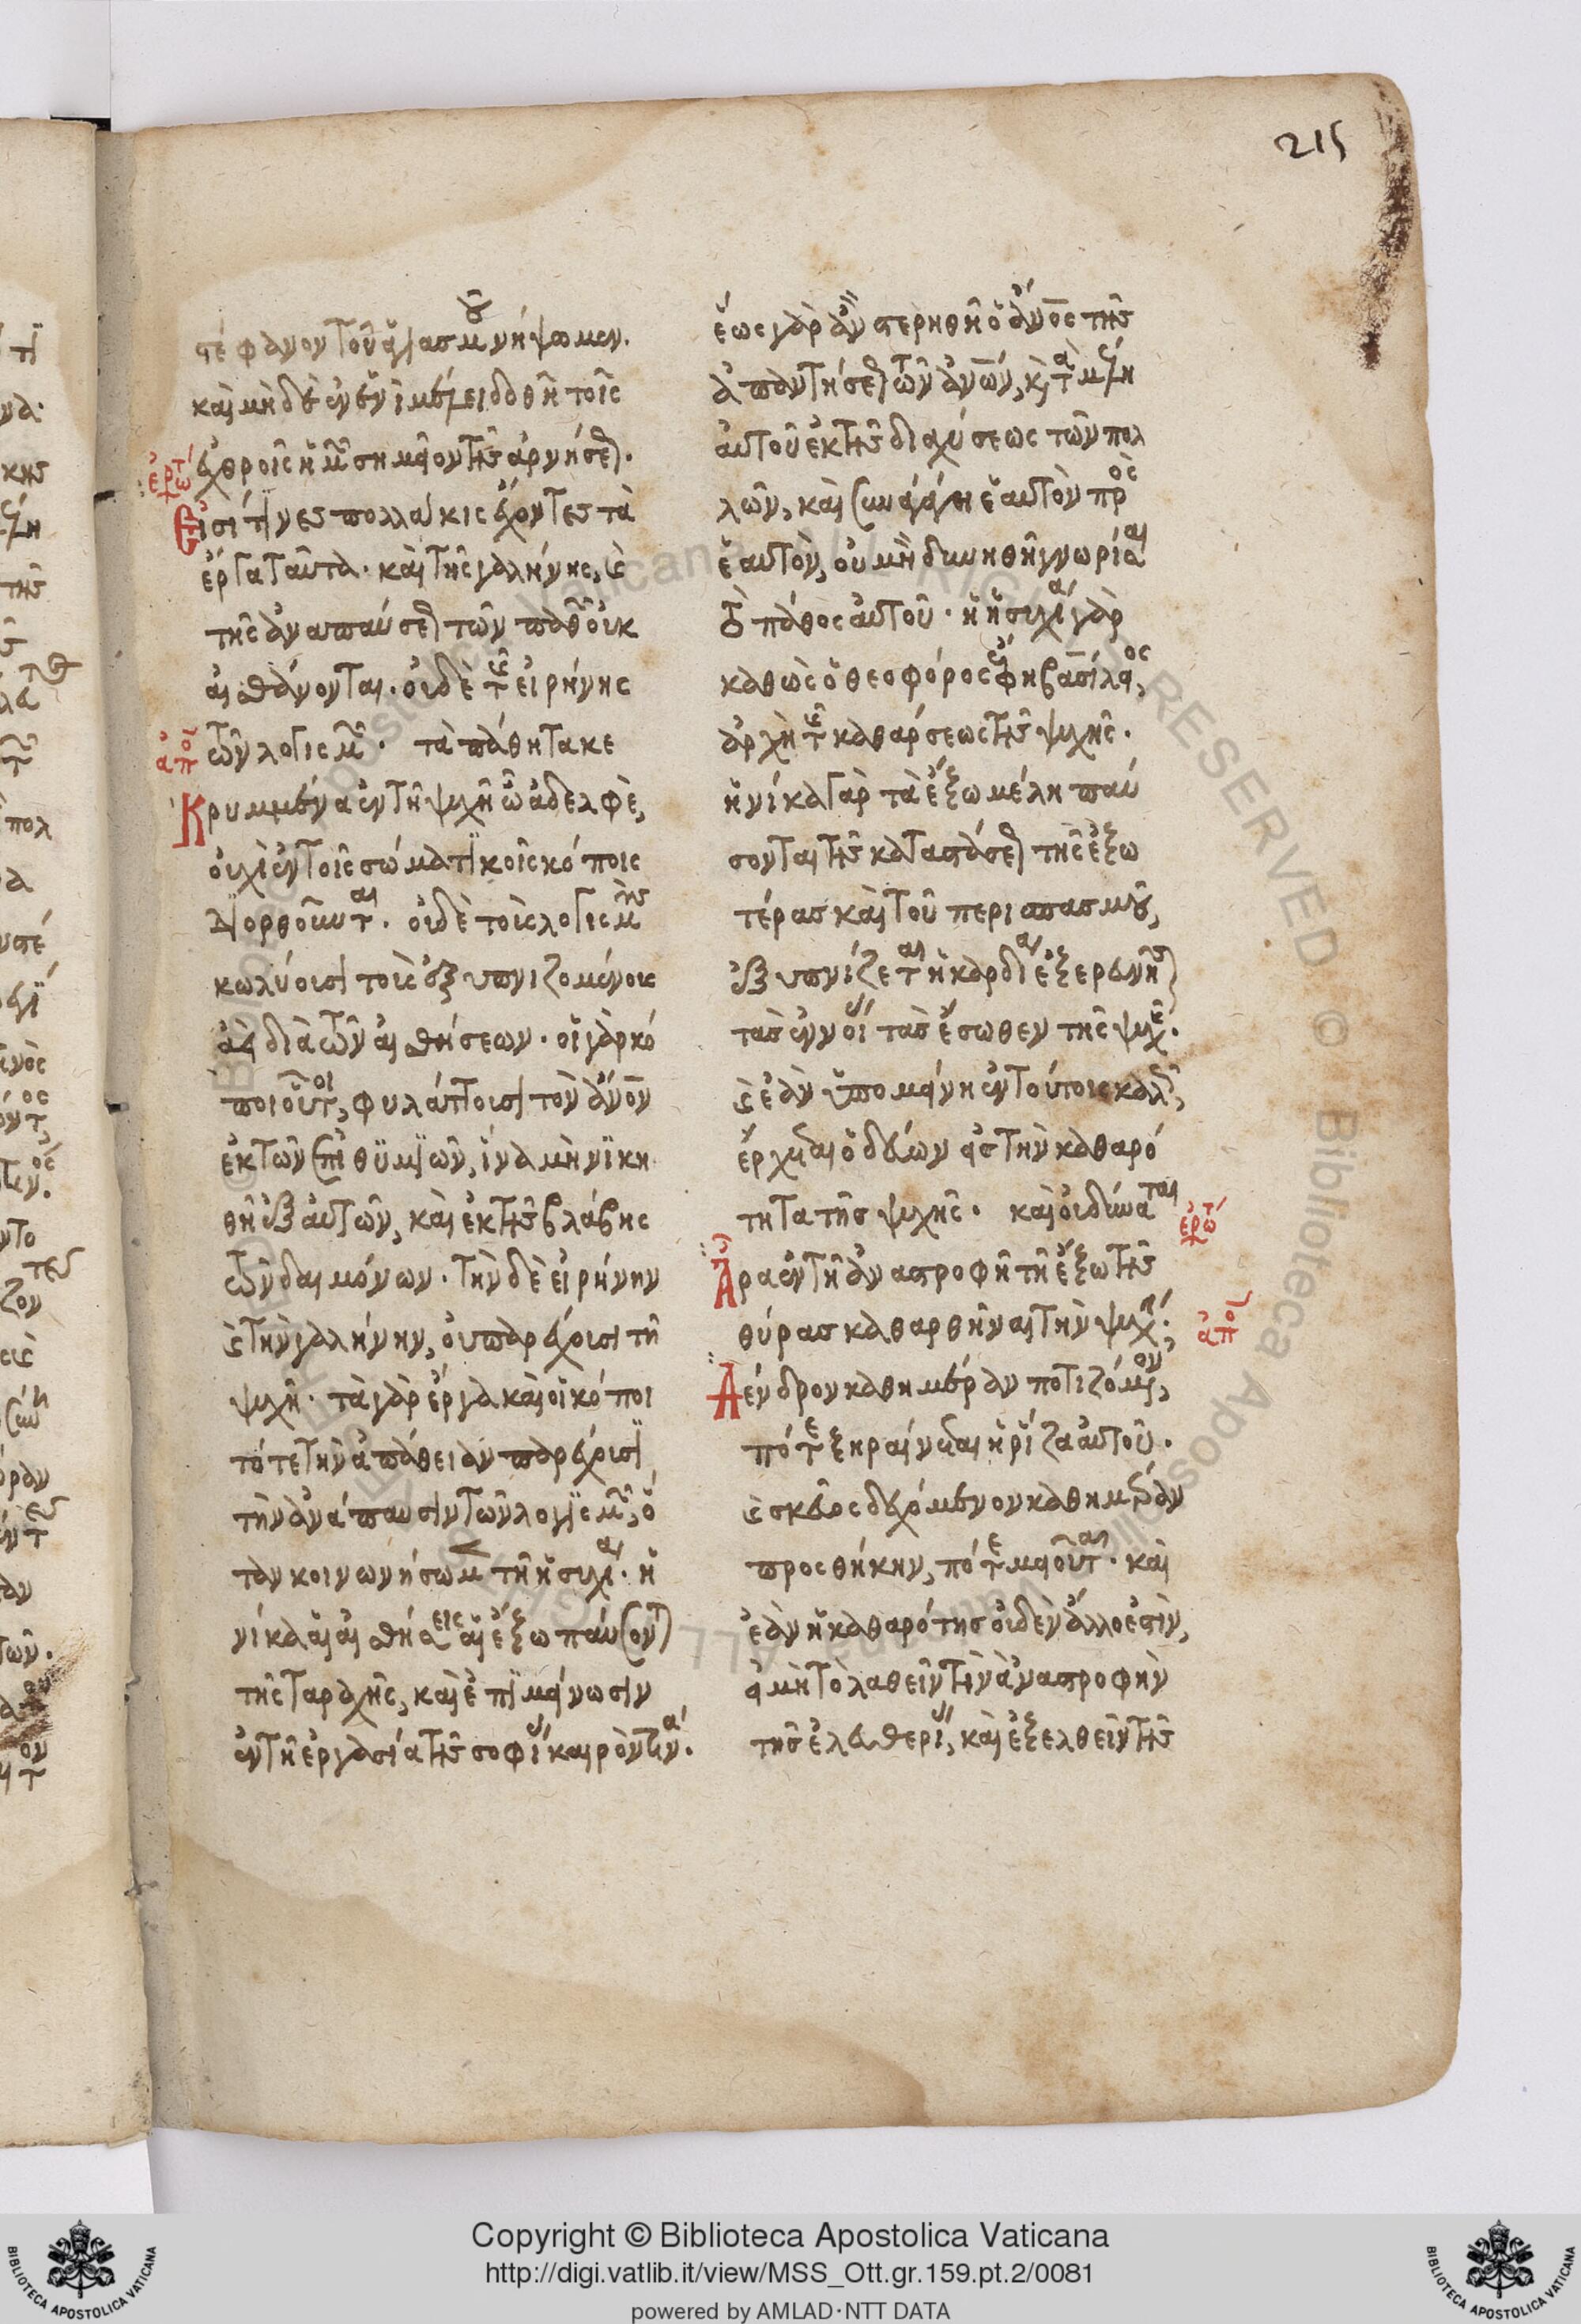 215
στέφανον τοῦ ἁγιασμοῦ νήψωμεν.
καὶ μηδὲ ἐν ἑνὶ μέλει δοθῇ τοῖς
ἐχθροῖς ἡμῶν σημεῖον τῆς ἀρνήσεως.
ἐρώτ
Εἰσί τινες πολλάκις ἔχοντες τὰ
ἔργα ταῦτα. καὶ τῆς γαλήνης, καὶ
τῆς ἀναπαύσεως τῶν παθῶν οὐκ
αἰσθάνονται. οὐδὲ τῆς εἰρήνης
ἀπό
τῶν λογισμῶν. τὰ πάθη τὰ κε
Κρυμμένα ἐν τῇ ψυχῇ ὦ ἀδελφὲ,
οὐχὶ ἐν τοῖς σωματικοῖς κόποις
διορθοῦνται. οὐδὲ τοῖς λογισμοῖς
κωλύουσι τοῖς ἐξυπνιζομένοις
ἀεὶ διὰ τῶν αἰσθήσεων. οἱ γὰρ κό
ποι οὗτοι, φυλάττουσι τὸν ἄνον
ἐκ τῶν ἐπιθυμιῶν, ἵνα μὴ νικη
θῇ ἐξ αὐτῶν, καὶ ἐκ τῆς βλάβης
τῶν δαιμόνων. τὴν δὲ εἰρήνην
καὶ τὴν γαλήνην, οὐ παρέχουσι τῇ
ψυχῇ. τὰ γὰρ ἔργα καὶ οἱ κόποι
τότε τὴν ἀπάθειαν παρέχουσι
τὴν ἀνάπαυσιν τῶν λογισμῶν, ὅ
ταν κοινωνήσωμεν τῇ ἡσυχίᾳ. ἡ
νίκα αἱ αἰσθήσεις αἱ ἔξω παύσονται
τῆς ταραχῆς, καὶ ἐπιμείνωσιν
ἐν τῇ ἐργασίᾳ τῆς σοφίας καιρόν τινα.
ἕως γὰρ ἂν στερηθῇ ὁ ἄνος τῆς
ἀπαντήσεως τῶν ἀνων, καὶ τὰ μέλη
αὐτοῦ ἐκ τῆς διαχύσεως τῶν πολ
λῶν, καὶ συναγάγῃ ἑαυτὸν πρὸς
ἑαυτὸν, οὐ μὴ δυνηθῇ γνωρίσαι
τὸ πάθος αὐτοῦ. ἡ ἡσυχία γὰρ
καθὼς ὁ θεοφόρος ἔφη βασίλειος,
ἀρχὴ τῆς καθάρσεως τῆς ψυχῆς.
ἡνίκα γὰρ τὰ ἔξω μέλη παύ
σονται τῆς καταστάσεως τῆς ἐξω
τέρας καὶ τοῦ περισπασμοῦ,
ἐξυπνίζεται ἡ καρδία ἐξερευνῆσαι
τὰς ἐννοίας τὰς ἔσωθεν τῆς ψυχῆς.
καὶ ἐὰν ὑπομείνῃ ἐν τούτοις καλῶς,
ἔρχεται ὁδεύων εἰς τὴν καθαρό
τητα τῆς ψυχῆς. καὶ οὐ δύναται
ἐρώτ
Ἆρα ἐν τῇ ἀναστροφῇ τῇ ἔξω τῆς
θύρας καθαρθῆναι τὴν ψυχήν;
ἀπό
Δένδρον καθημέραν ποτιζόμενον,
πότε ξηραίνεται ἡ ῥίζα αὐτοῦ.
καὶ σκεῦος δεχόμενον καθημέραν
προσθήκην, πότε μειοῦται. καὶ
ἐὰν ἡ καθαρότης οὐδὲν ἄλλο ἐστὶν,
εἰ μὴ τὸ λαθεῖν τὴν ἀναστροφὴν
τῆς ἐλευθερίας, καὶ ἐξελθεῖν τῆς
Copyright © Biblioteca Apostolica Vaticana
http://digi.vatlib.it/view/MSS_Ott.gr.159.pt.2/0081
powered by AMLAD·NTT DATA